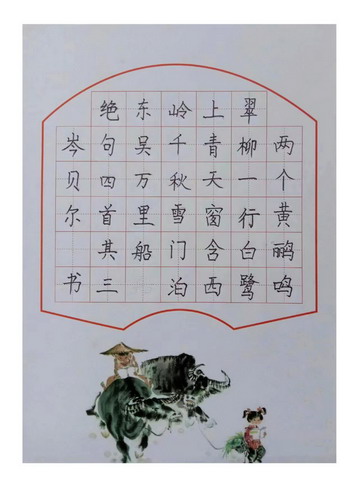 两个黄鹂鸣
翠柳一行白鹭
上青天窗含西
岭千秋雪门泊
东吴万里船
绝句四首其三
岑贝尔 书